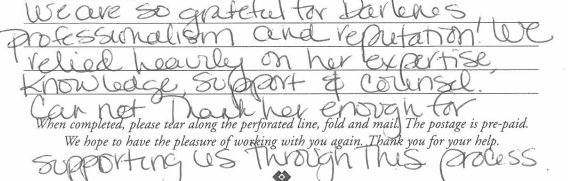 We are so grateful for Darlenes
professionalism and reputation! We
relied heavily on her expertise,
knowledge, support & counsel.
Can not Thank her enough for
When completed, please tear along the perforated line, fold and mail. The postage is pre-paid.
We hope to have the pleasure of working with you again. Thank you for your help.
supporting us Through This process.